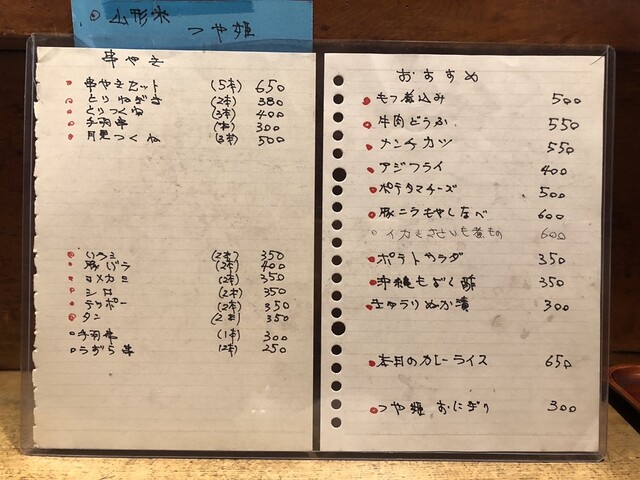 山形米
つや姫
串やき
串やきセット (5本) 650
とりねぎま (2本) 380
とりつくね (3本) 400
手羽串 (1本) 300
月見つくね (3本) 500
(2本) 350
豚バラ (2本) 400
コメカミ (2本) 350
シロ (2本) 350
テッポー (2本) 350
タン (2本) 350
手羽串 (1本) 300
うずら串 (2本) 250
おすすめ
もつ煮込み 500
牛肉どうふ 550
メンチカツ 550
アジフライ 400
ポテタマチーズ 500
豚ニラもやしなべ 600
イカとさといも煮もの 600
ポテトサラダ 350
沖縄もずく酢 350
キュウリぬか漬 300
本日のカレーライス 650
つや姫 おにぎり 300